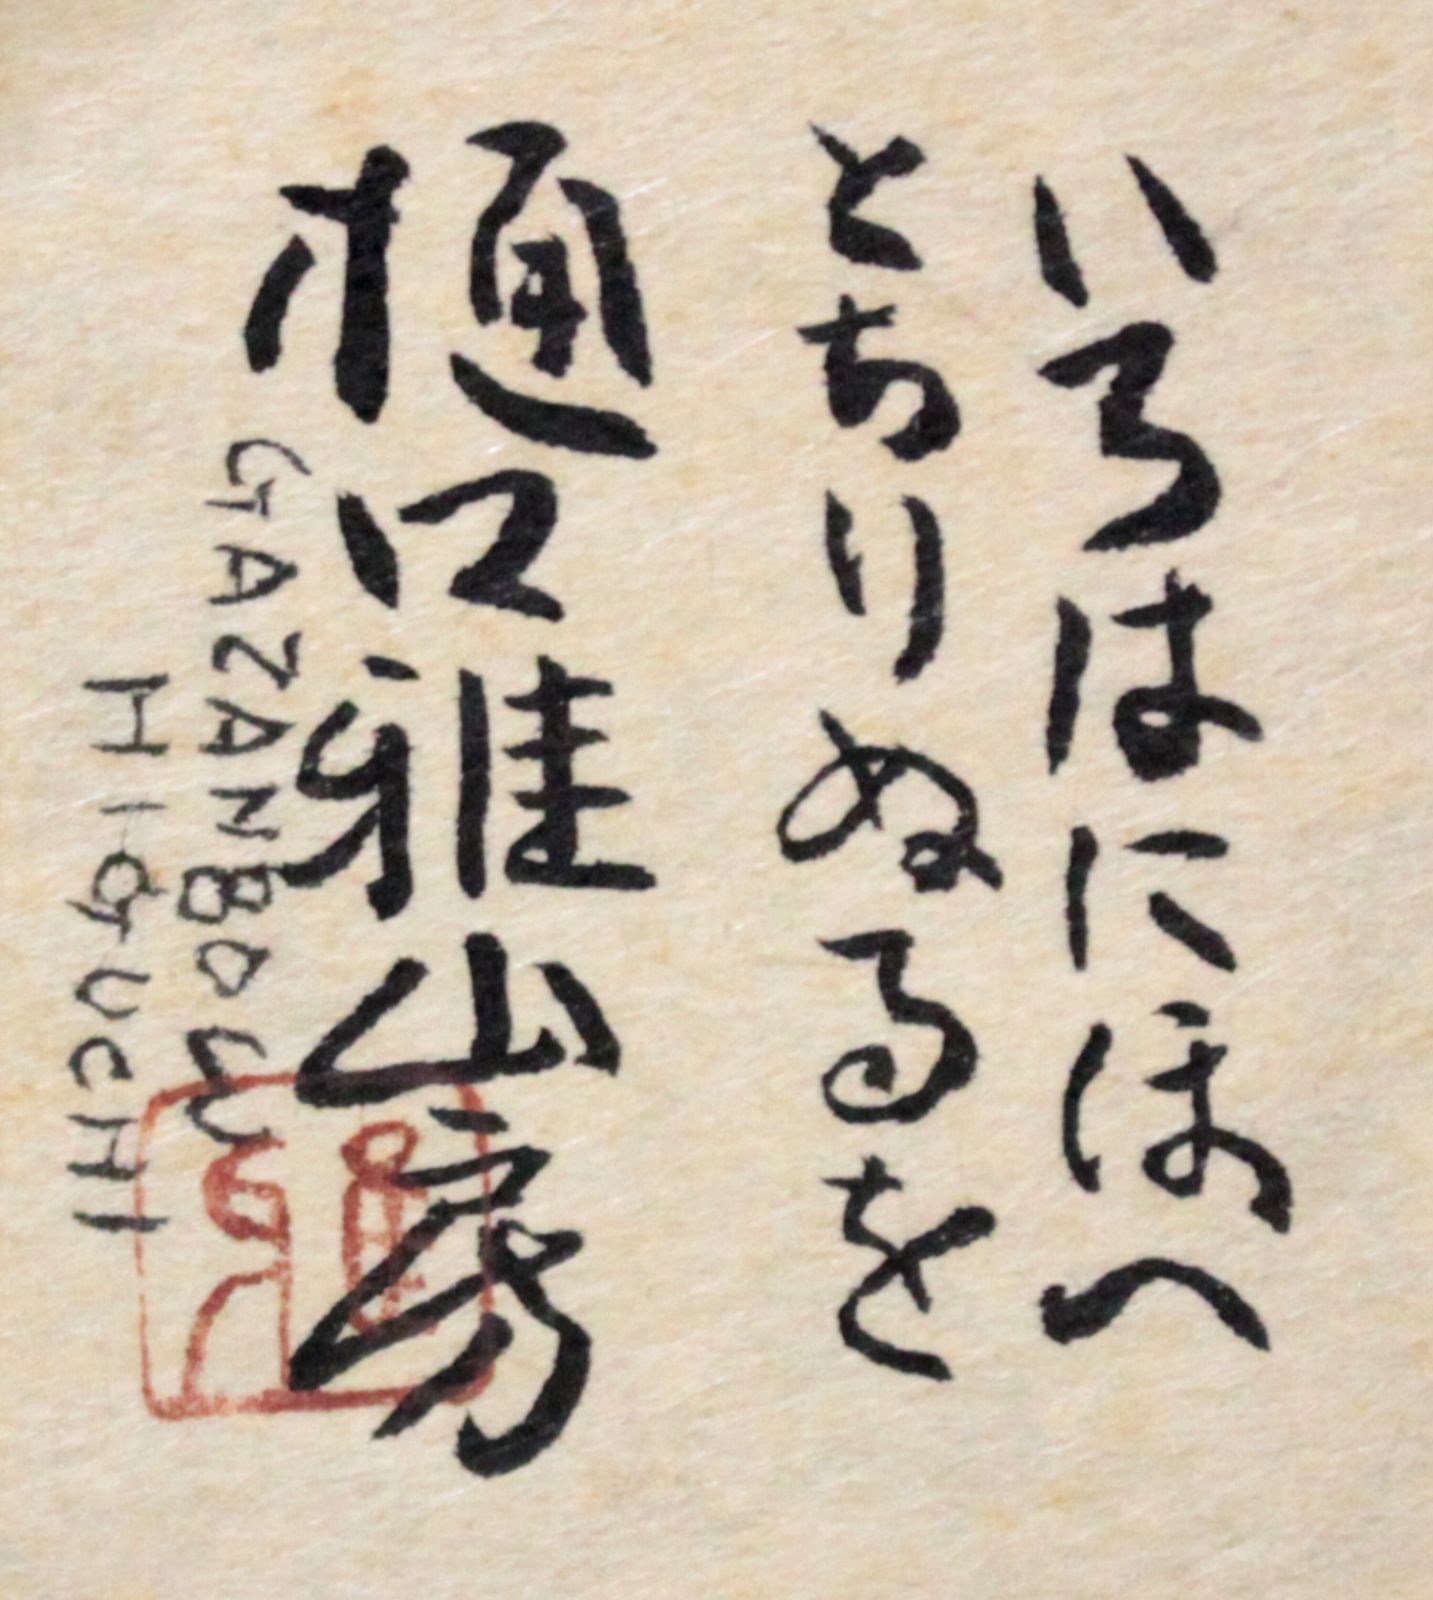 いろはにほへ
とちりぬるを
樋口雅山房
GAZANBOUU
HIGUCHI